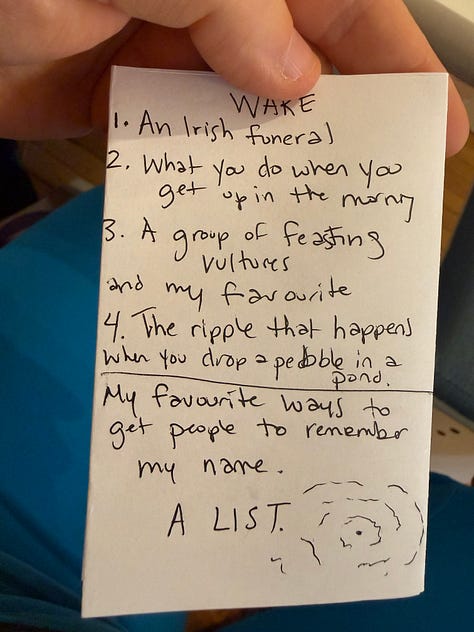 WAKE
1. An Irish funeral
2. What you do when you
get up in the morning
3. A group of feasting
vultures
and my favourite
4. The ripple that happens
when you drop a pebble in a
pond.
My favourite ways to
get people to remember
my name.
A LIST.